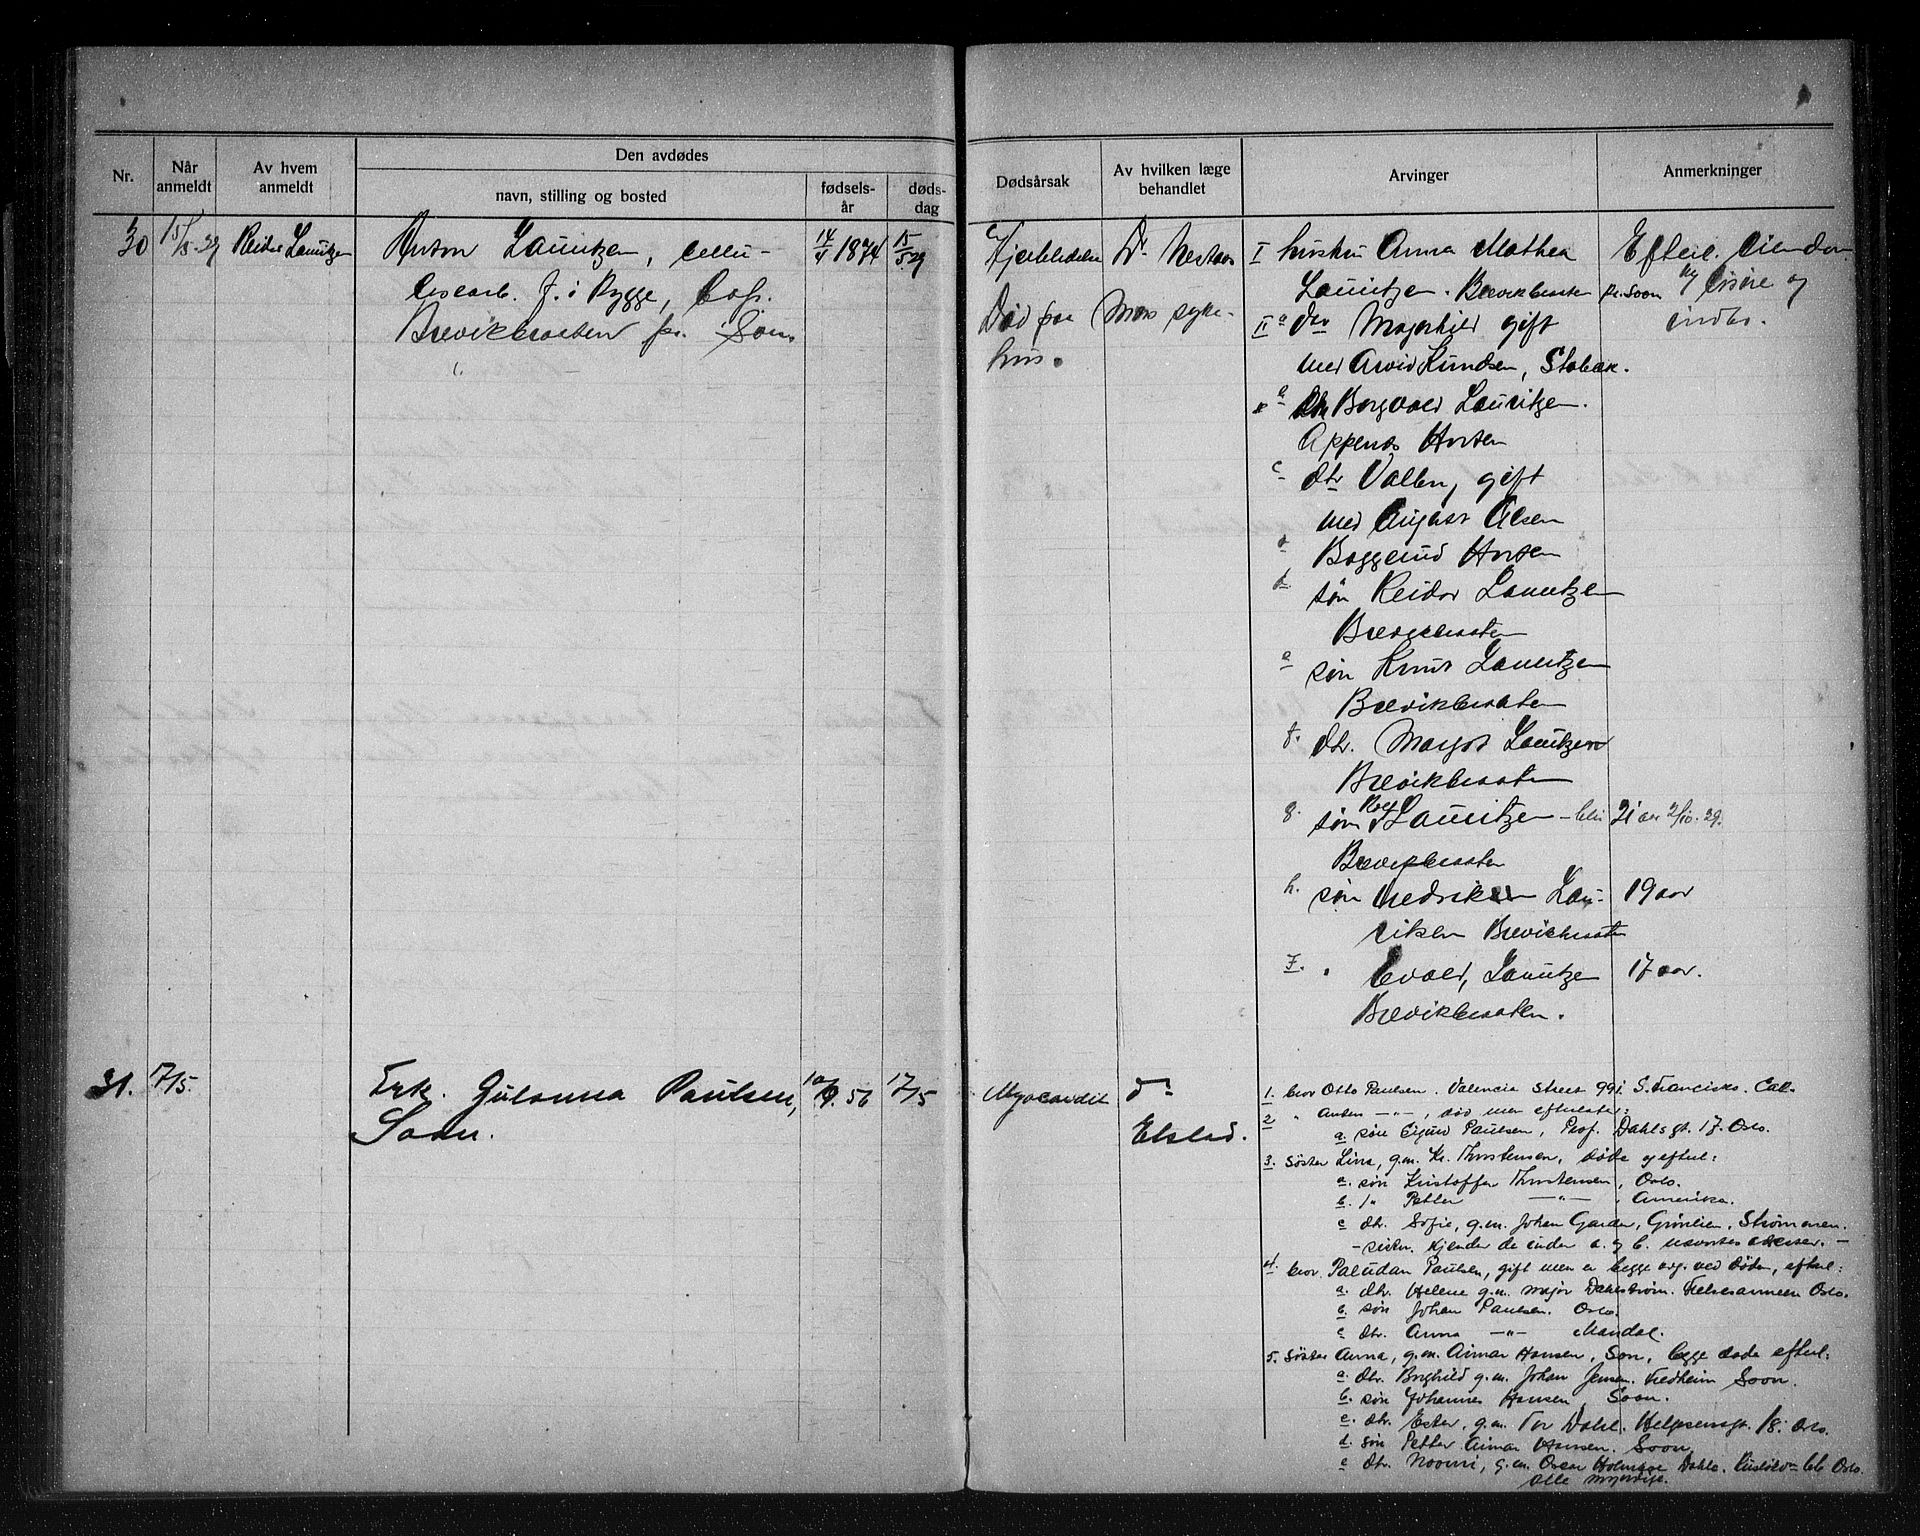 Nr.
Når anmeldt
Av hvem anmeldt
Den avdødes
navn, stilling og bosted
fødsels-år
døds-dag
Dødsårsak
Av hvilken læge behandlet
Arvinger
Anmerkninger
30
15/5-29
Reidar Lauritzen
Anton Lauritzen, cellu-
losearb. f. i Rygge,
Brevikbraaten pr. Son.
14/ 1874
15/5 29
Hjerteledelse
Død paa
hus.
Dr.
Moss syke-
I hustru Anna Mathea
Lauritzen. Brevikbraaten pr. Soon
II a dtr Magnhild gift
med Arvid Knudsen, Stabæk.
Borgvald Lauritzen.
Horten
c dtr Valben, gift
med August Olsen
Baggerud Horten
d søn Reidar Lauritzen
Brevikbraaten
e søn Knut Lauritzen
Brevikbraaten
f. dtr. Margot Lauritzen
Brevikbraaten
g. søn Lauritzen - blir 21 aar 2/10. 29.
Brevikbraaten
h. søn Fredrik Lau-
ritzen Brevikbraaten
19 aar
" Evald, Lauritzen
Brevikbraaten.
17 aar.
Efterl. eiendom
og
indbo.
31.
17/5.
Frk. Gulanna Paulsen,
Soon.
10/9. 56
17/5
Myocardit
dr
Elstad.
1. bror Otto Paulsen. Valencia Street 991 S. Francisko. Cal.
2 " Anton —"—, død men efterlater:
a. søn Sigurd Paulsen, Prof. Dahlsgt. 17. Oslo.
3. søster Lina, g.m. Kr. Thorstensen, døde og efterl:
a. søn Kristoffer Thorstensen, Oslo.
b. " Petter —"—, Amerika.
c dtr. Sofie, g.m. Johan Garder, Grønlien, Strømmen.
- sistn. kjender de under a. og b. nævntes adresser. -
4. bror Paludan Paulsen, gift men er begge avg. ved døden, efterl:
a. dtr. Helene g.m. major Dahlstrøm. Frelsesarmeen Oslo.
b. søn Johan Paulsen. Oslo.
c dtr. Anna —"— Mandal.
5. søster Anna, g.m. Aimar Hansen, Son, begge døde efterl:
a. dtr. Borghild g.m. Johan Jensen. Fredheim Soon.
b. søn Johannes Hansen, Soon.
c. dtr. Ester, g.m. Tor Dahl. Helgesensgt. 18. Oslo.
d. søn Petter Aimar Hansen. Soon.
e dtr. Noomi, g.m. Oscar Oslo.
alle myndige.